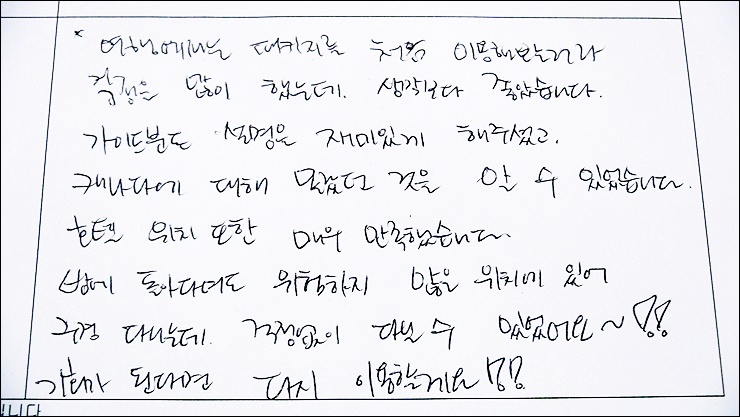 * 여행에서는 패키지를 처음 이용해보는거라
걱정을 많이 했는데. 생각보다 좋았습니다.
가이드분도 설명을 재미있게 해주셨고.
캐나다에 대해 몰랐던 것을 알 수 있었습니다.
호텔 위치 또한 매우 만족했습니다.
밤에 돌아다녀도 위험하지 않을 위치에 있어
구경 다니는데. 걱정없이 다닐 수 있었어요~!!
기회가 된다면 다시 이용할게요!!
니다